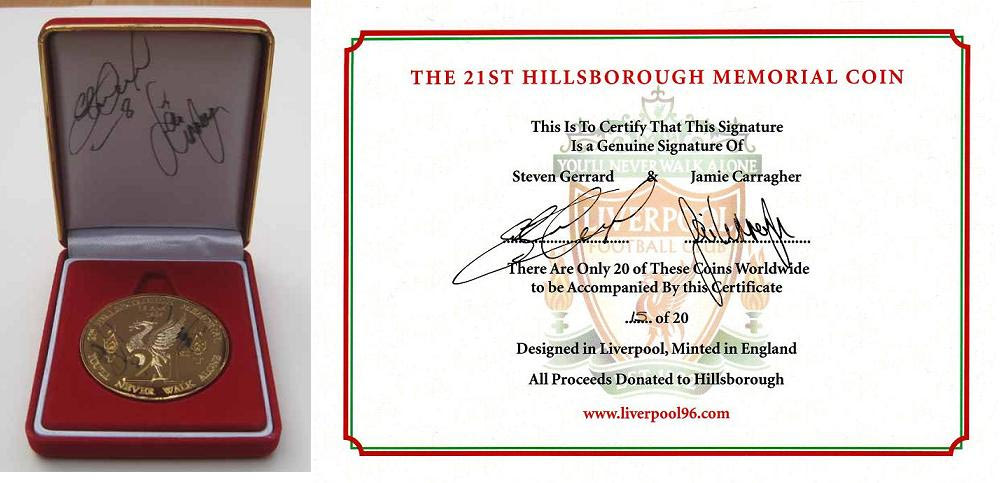 NEVER WALK ALONE
8
THE 21ST HILLSBOROUGH MEMORIAL COIN
This Is To Certify That This Signature
Is a Genuine Signature Of
YOU'LL NEVER WALK ALONE
Steven Gerrard & Jamie Carragher
LIVERPOOL
FOOTBALL CLUB
There Are Only 20 of These Coins Worldwide
to be Accompanied By this Certificate
15 of 20
Designed in Liverpool, Minted in England
All Proceeds Donated to Hillsborough
www.liverpool96.com